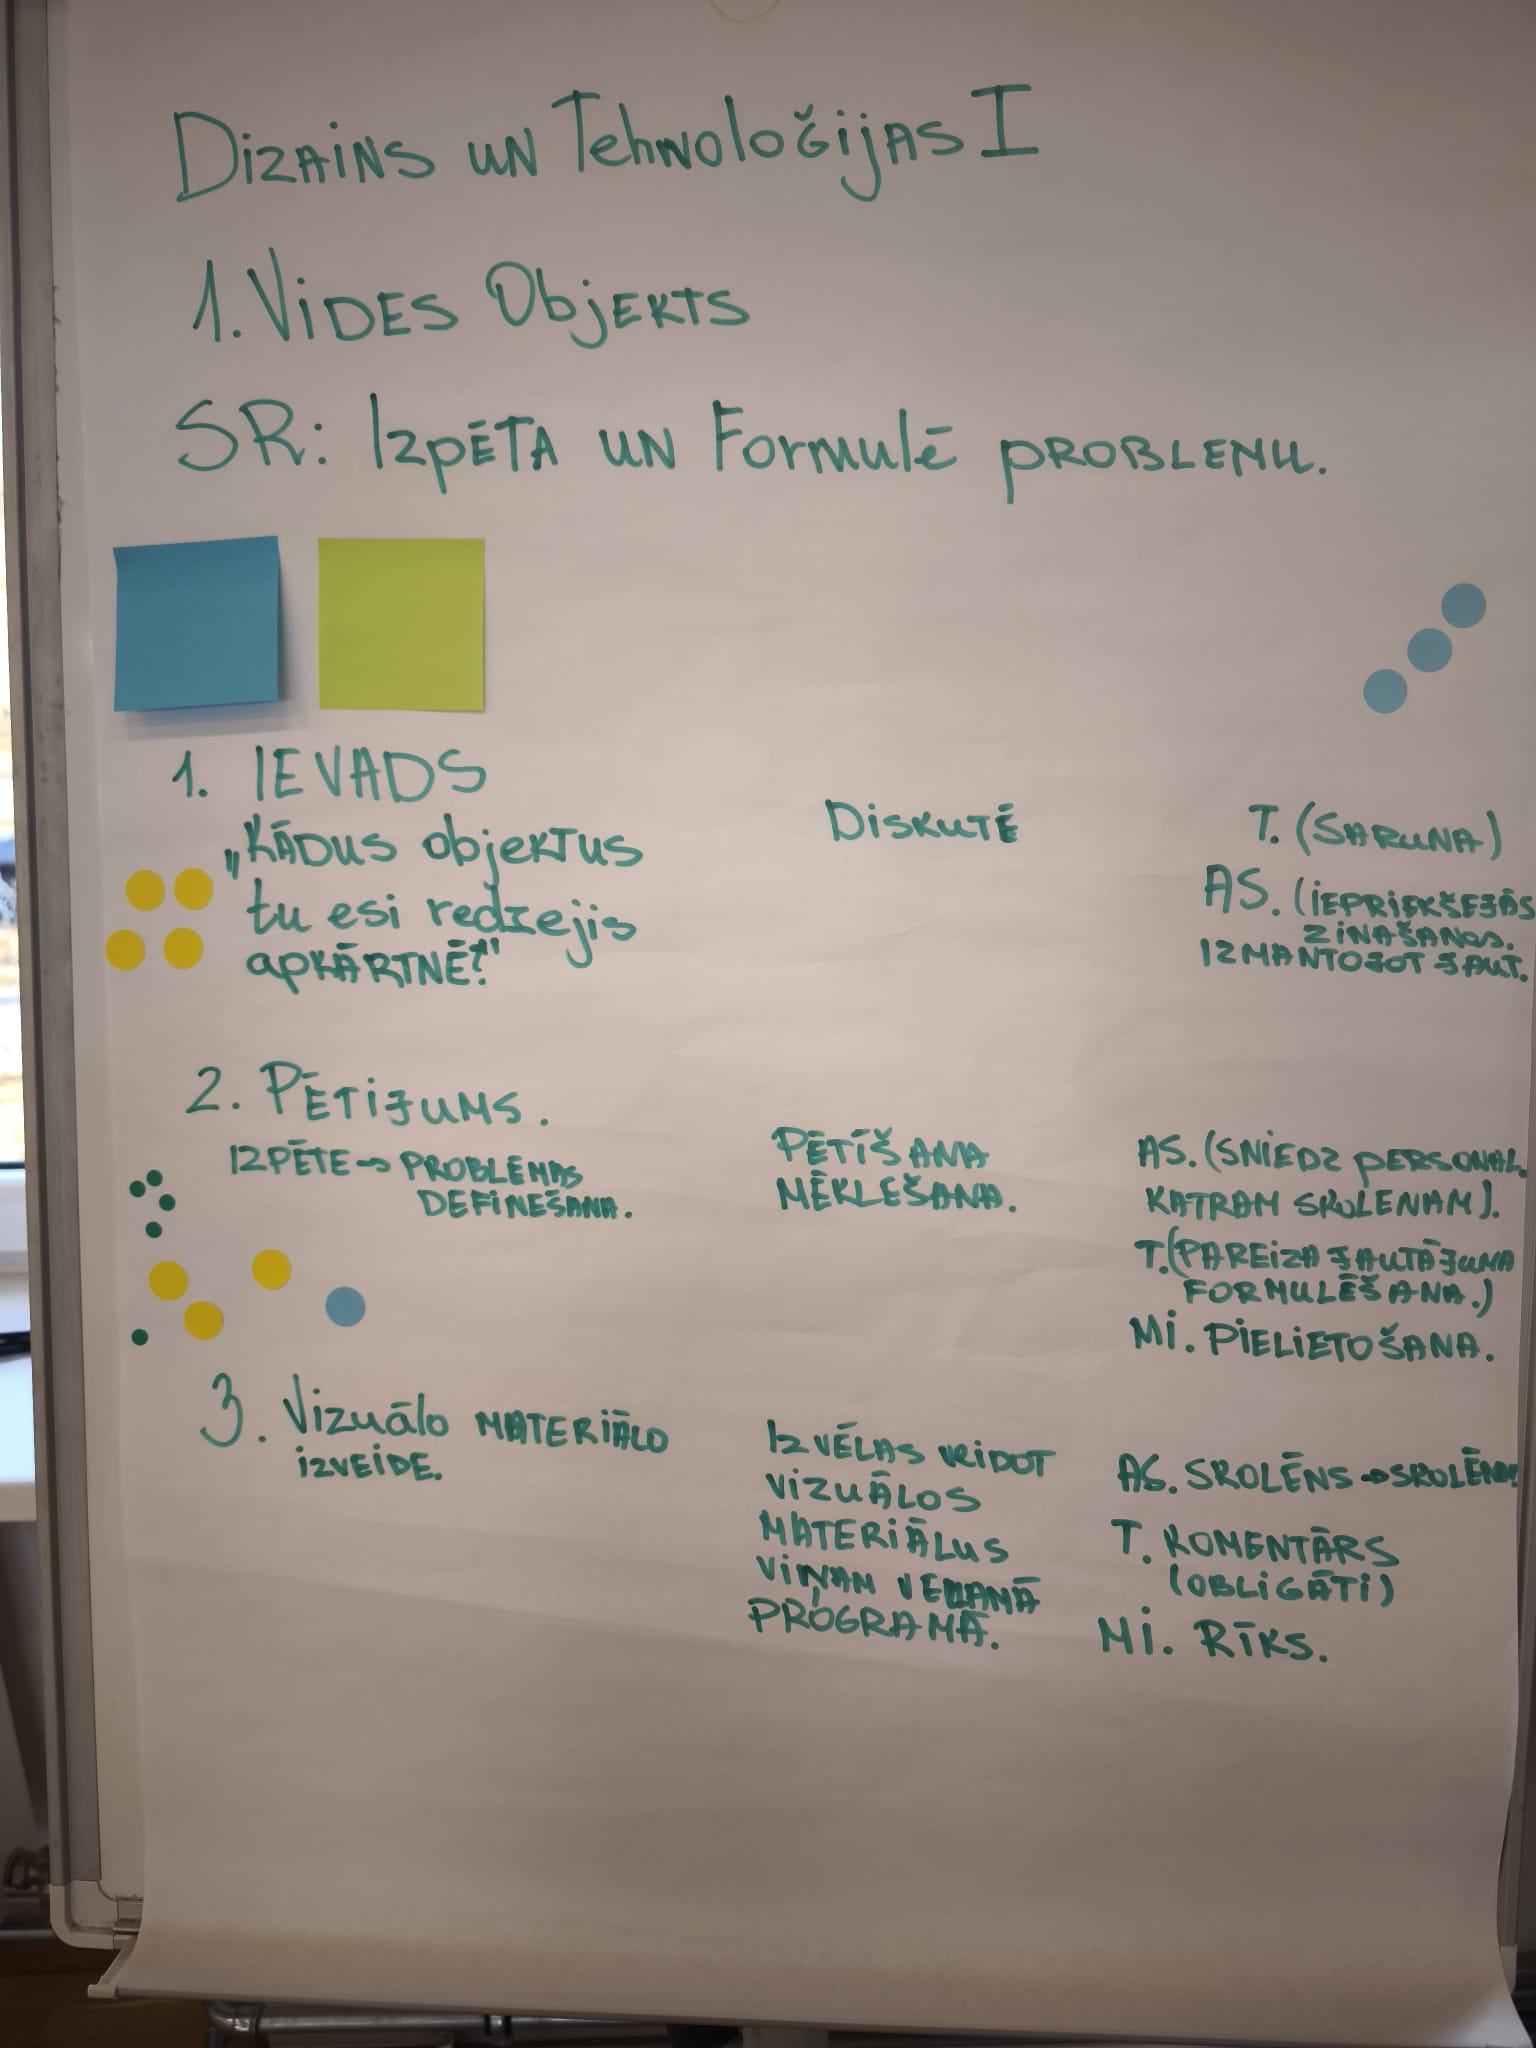 Dizains un Tehnoloģijas I
1. Vides Objekts
SR: Izpēta un Formulē problemu.
1. IEVADS
„Kādus objektus
tu esi redzejis
apkārtnē?"
Diskutē
T. (Saruna)
AS. (iepriekšejās
zinašanas.
izmantojot jaut.
2. Pētijums.
Izpēte → problēmas
definešana.
Pētīšana
mēklešana.
AS. (sniedz personal.
katram skolenam).
T. (Pareiza jautājuma
formulēšana.)
Mi. pielietošana.
3. Vizuālo materiālo
izveide.
Izvēlas veidot
vizuālos
materiālus
viņam vēlamā
programā.
AS. skolēns → skolēn
T. komentārs
(obligāti)
Mi. rīks.